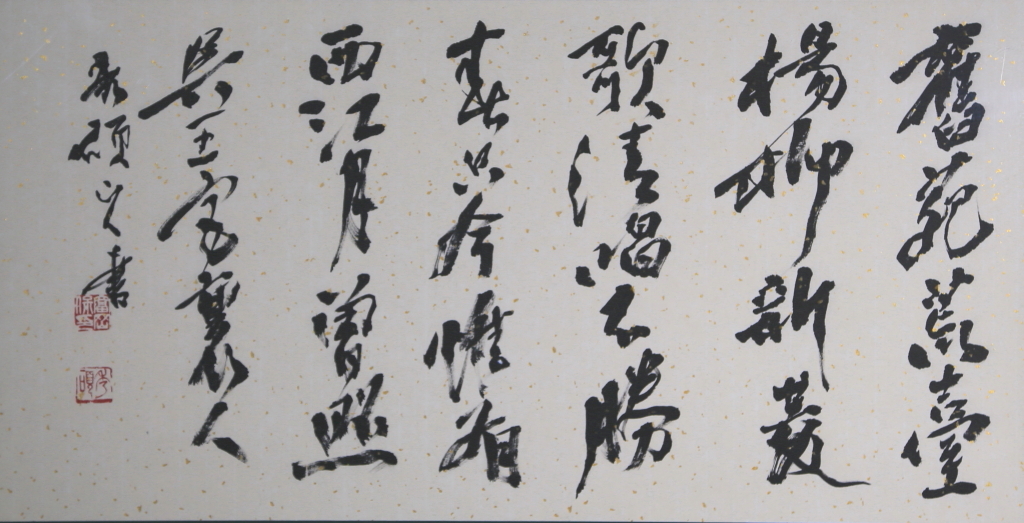 舊苑荒臺
楊柳新菱
歌清唱不勝
春只今惟有
西江月曾照
吳王宮裏人
碩山人書